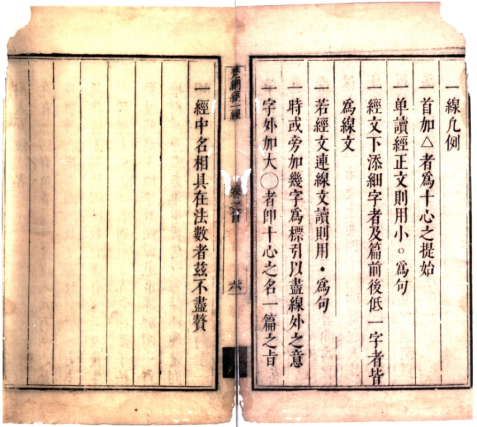 一線凡例
一首加△者爲十心之提始
一单讀經正文則用小○爲句
一經文下添細字者及篇前後低一字者皆
爲線文
一若經文連線文讀則用•爲句
一時或旁加幾字爲標引以盡線外之意
一字外加大○者卽十心之名一篇之旨
梵網經一線
六
一經中名相具在法數者茲不盡贅